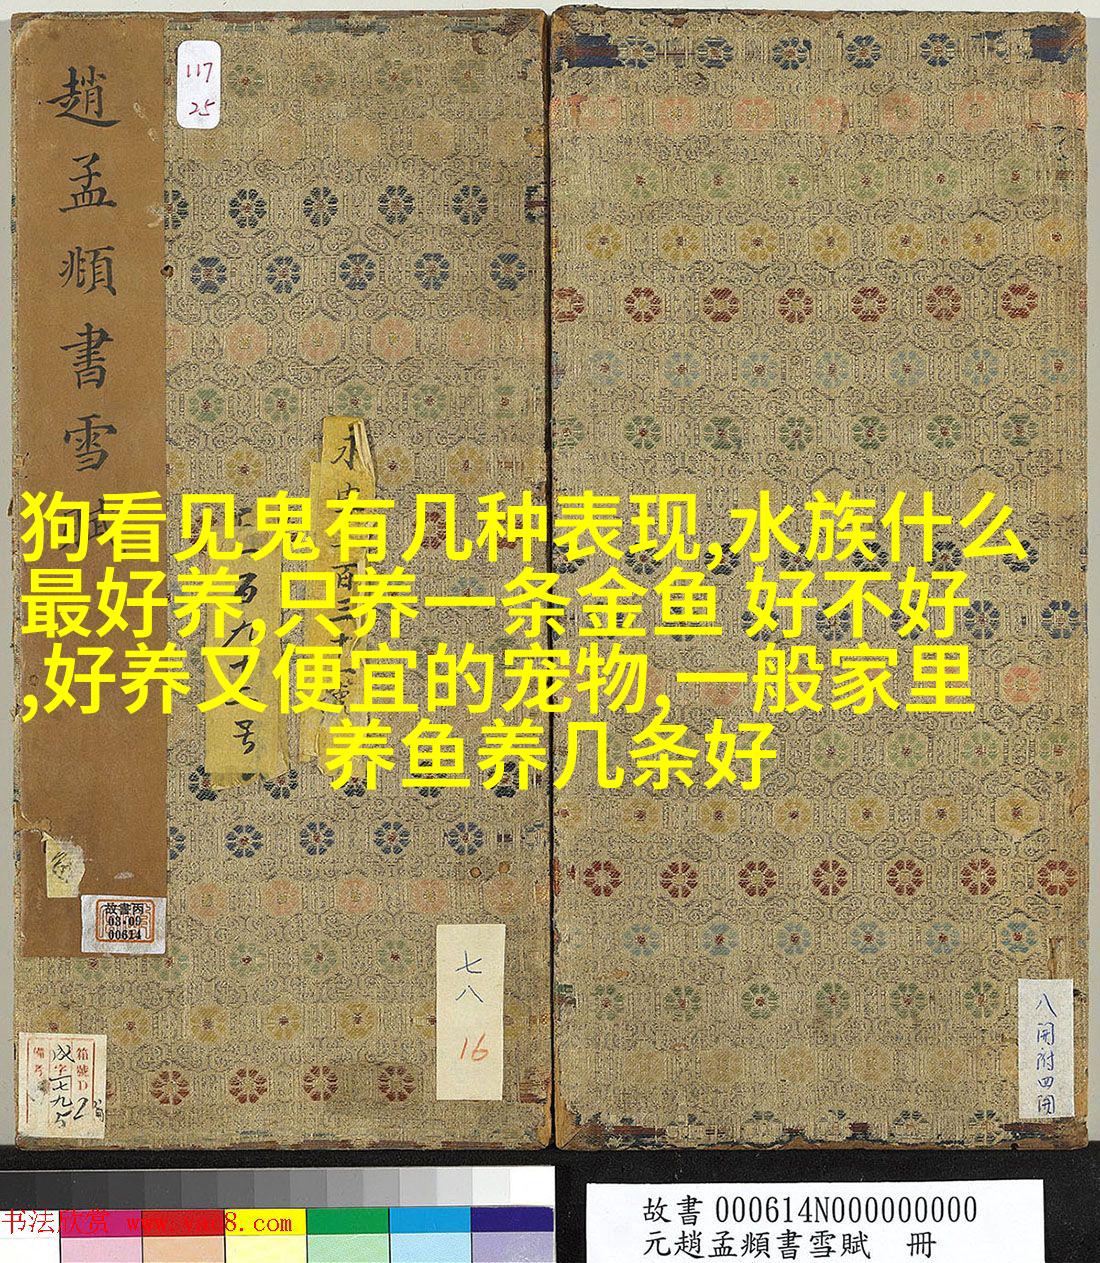 趙孟頫書雪
117
25
狗看见鬼有几种表现,水族什么
最好养,只养一条金鱼 好不好
,好养又便宜的宠物,一般家里
养鱼养几条好
号
故書丙
03-09
00614
七八
16
箱號D
備考
八開附四開
书法欣赏 www.yac8.com
故書 000614N000000000
元趙孟頫書雪賦 冊